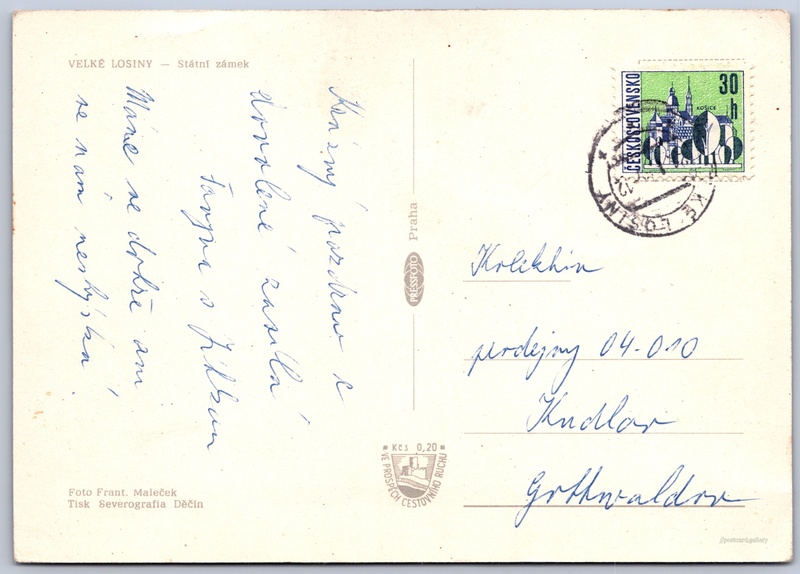 VELKÉ LOSINY — Státní zámek
Krásný pozdrav z
dovolené zasílá
s
Máme se dobře ani
se nám nestýská
Foto Frant. Maleček
Tisk Severografia Děčín
PRESSFOTO Praha
Kčs 0,20
VE PROSPĚCH CESTOVNÍHO RUCHU
ČESKOSLOVENSKO
30 h
KOŠICE
KÉ LOSINY
prodejny 04-010
Kudlov
Gottwaldov
//postcard.gallery